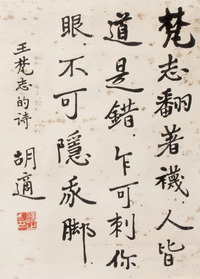 梵志翻著襪人皆
道是錯.乍可刺你
眼.不可隱我脚.
王梵志的诗
胡適